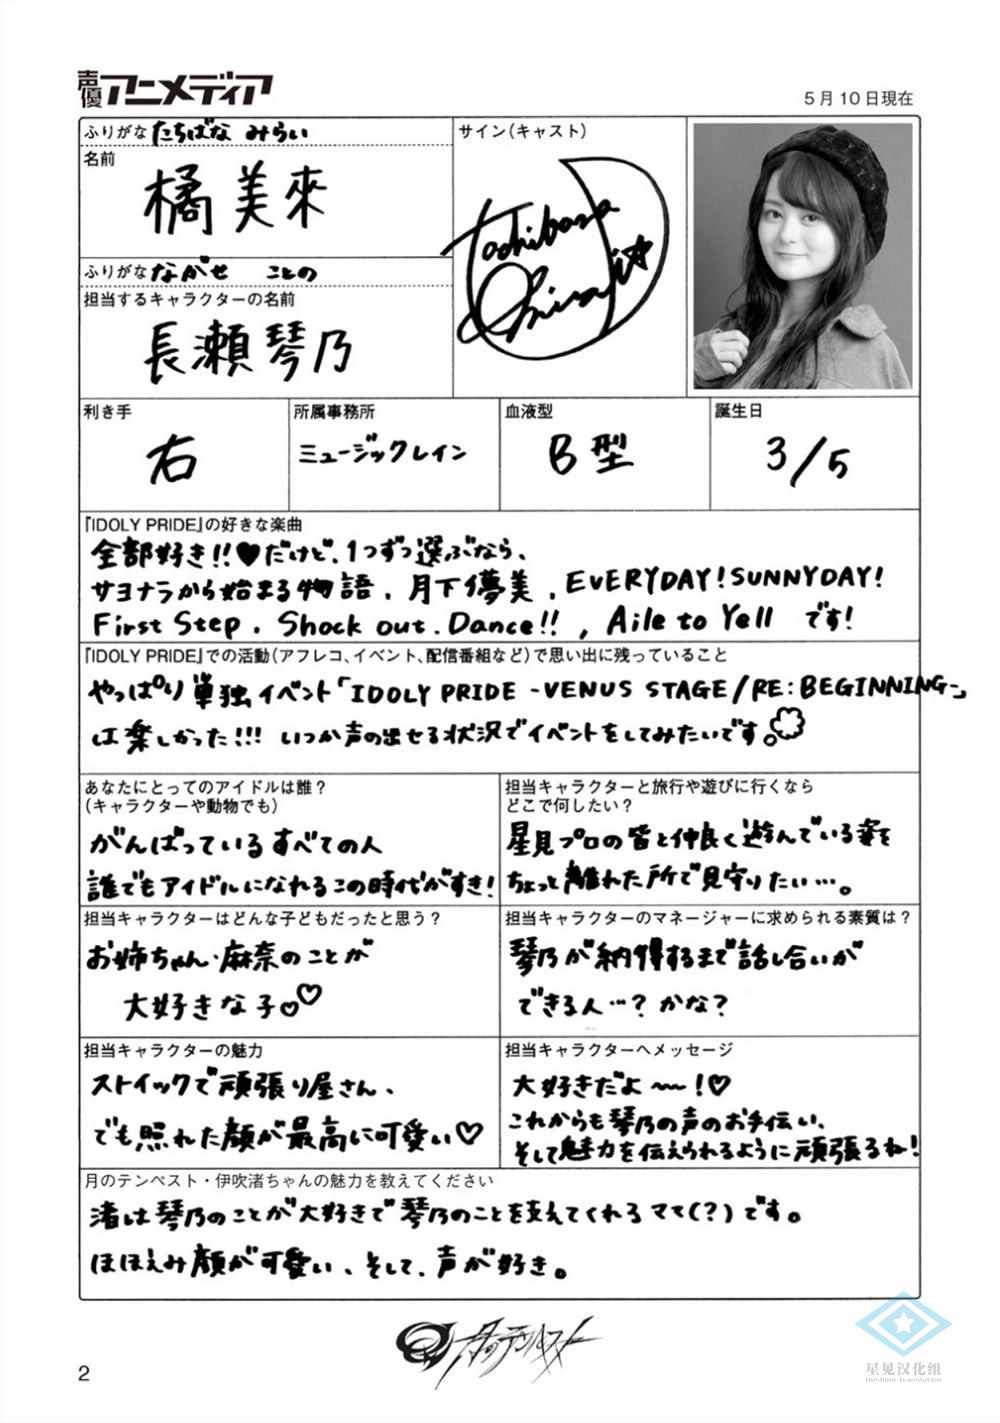 声優アニメディア
5月10日現在
ふりがな たちばな みらい
名前
橘 美來
ふりがな ながせ ことの
担当するキャラクターの名前
長瀬 琴乃
サイン(キャスト)
Tachibana
Mirai
利き手
右
所属事務所
ミュージックレイン
血液型
B型
誕生日
3/5
『IDOLY PRIDE』の好きな楽曲
全部好き!!♥だけど、1つずつ選ぶなら、
サヨナラから始まる物語、月下儚美、EVERYDAY!SUNNYDAY!
First Step、Shock out、Dance!!、Aile to Yell です!
『IDOLY PRIDE』での活動(アフレコ、イベント、配信番組など)で思い出に残っていること
やっぱり単独イベント「IDOLY PRIDE -VENUS STAGE/RE:BEGINNING-」
は楽しかった!!! いつか声の出せる状況でイベントをしてみたいです。
あなたにとってのアイドルは誰?
(キャラクターや動物でも)
がんばっているすべての人
誰でもアイドルになれるこの時代がすき!
担当キャラクターと旅行や遊びに行くなら
どこで何したい?
星見プロの皆と仲良く遊んでいる姿を
ちょっと離れた所で見守りたい…。
担当キャラクターはどんな子どもだったと思う?
お姉ちゃん・麻奈のことが
大好きな子♡♡
担当キャラクターのマネージャーに求められる素質は?
琴乃が納得するまで話し合いが
できる人…?かな?
担当キャラクターの魅力
ストイックで頑張り屋さん、
でも照れた顔が最高に可愛い♡
担当キャラクターへメッセージ
大好きだよ〜〜!♡
これからも琴乃の声のお手伝い、
そして魅力を伝えられるように頑張るね!
月のテンペスト・伊吹渚ちゃんの魅力を教えてください
渚は琴乃のことが大好きで琴乃のことを支えてくれるママ(?)です。
ほほえみ顔が可愛い、そして、声が好き。
月のテンペスト
2
星见汉化组